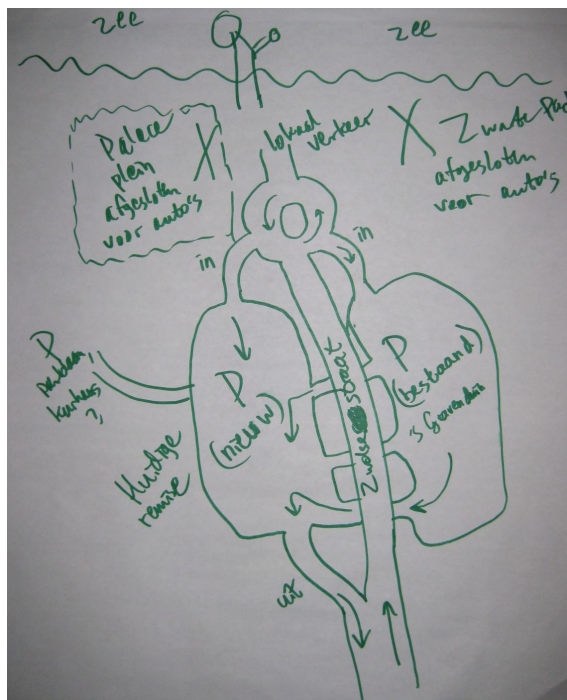 zee
zee
Palace
plein
afgesloten
voor auto's
X
lokaal
verkeer
X Zwarte Pad
afgesloten
voor auto's
in
in
P
kurhaus
?
P
(nieuw)
Huidige
remise
Zwolse straat
P
(bestaand)
's Gravenduin
uit